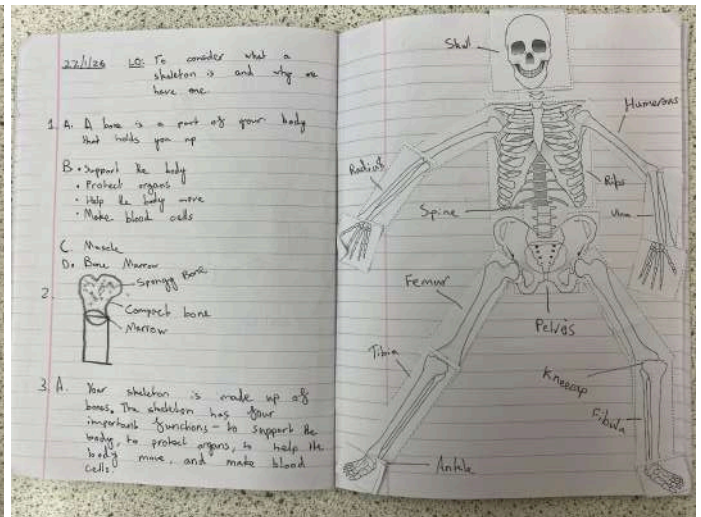 22/1/26 LO: To consider what a
skeleton is and why we
have one.
1. A. A bone is a part of your body
that holds you up
B • Support the body
• Protect organs
• Help the body move
• Make blood cells
C. Muscle
D. Bone Marrow
2.
Spongy Bone
Compact bone
Marrow
3. A. Your skeleton is made up of
bones. The skeleton has four
important functions - to support the
body, to protect organs, to help the
body move, and make blood
cells.
Skull
Humerous
Radius
Ribs
Spine
Ulna
Femur
Pelvis
Tibia
Kneecap
Fibula
Ankle